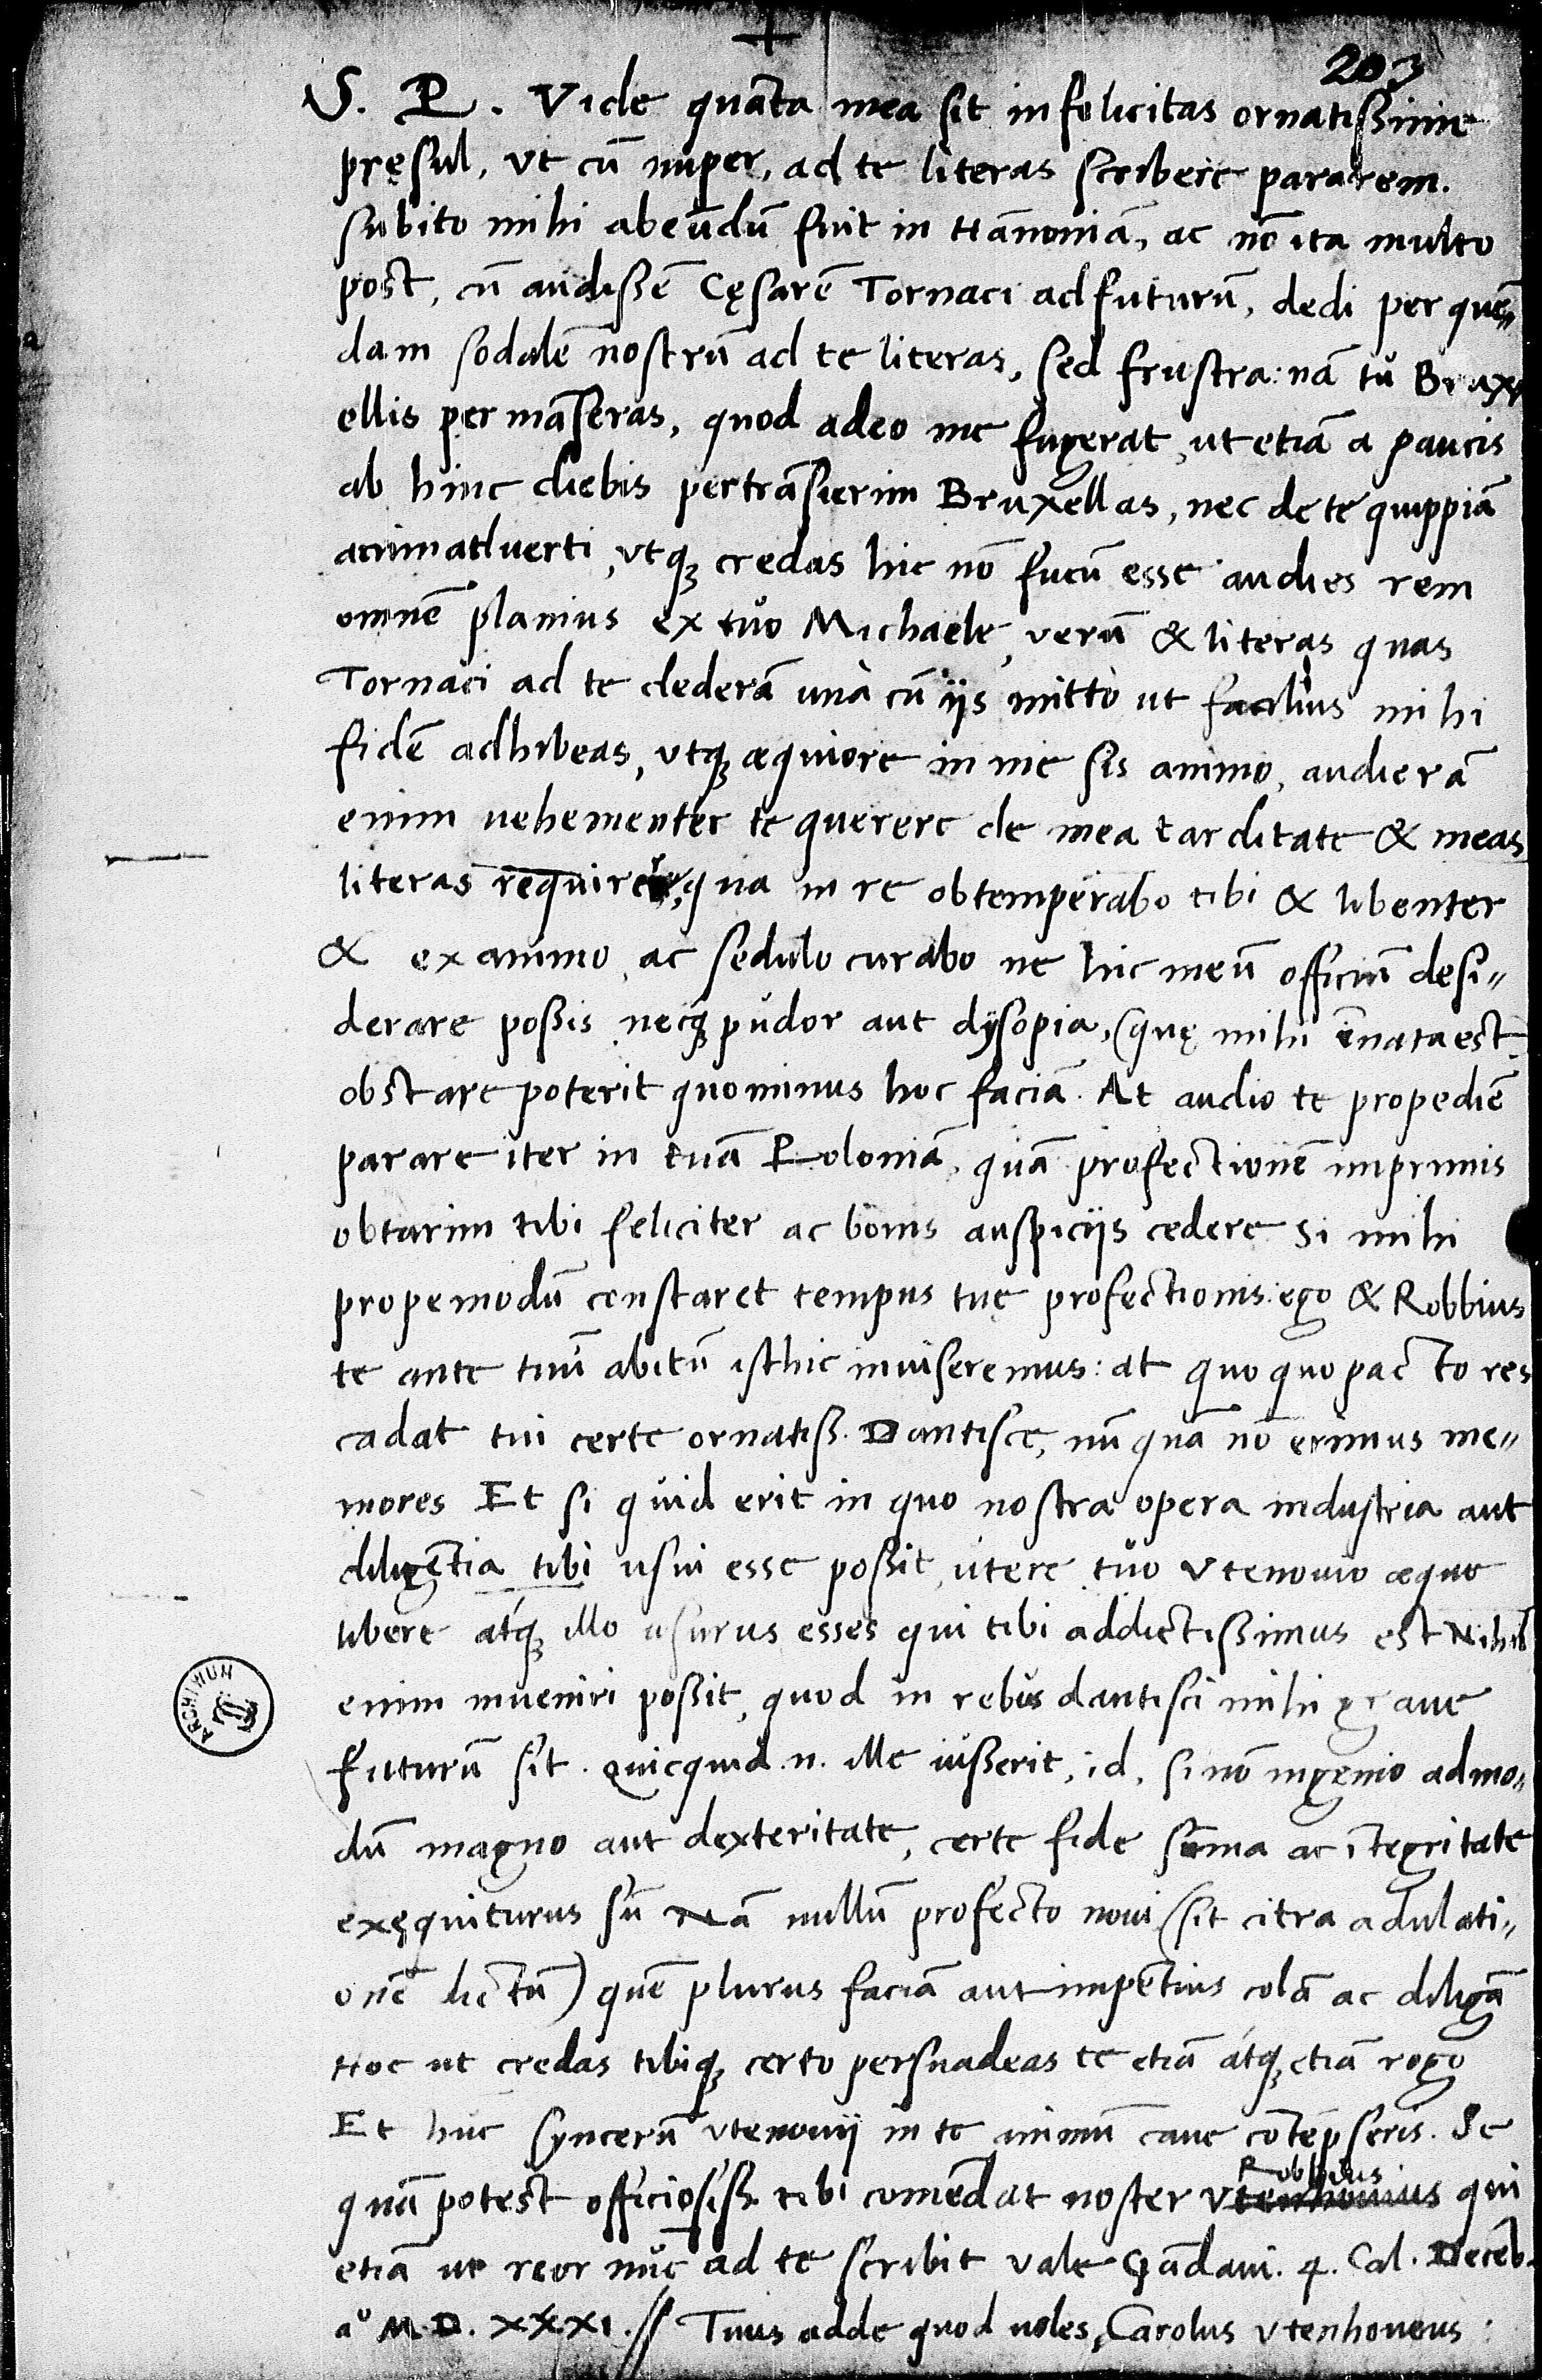 +
203
S. P. Vide quāta mea sit infelicitas ornatißime
pręsul, vt cū nuper, ad te literas scribere pararem.
subito mihi abeūdū fuit in Hānoniā, ac nō ita multo
post, cū audißē Cęsarē Tornaci adfuturū, dedi per quē„
dam sodalē nostrū ad te literas, sed frustra: nā tu Brux„
ellis permāseras, quod adeo me fugerat, ut etiā a paucis
ab hinc diebus pertrāsierim Bruxellas, nec de te quippiā
animaduerti, vtq; credas hic nō fucū esse audies rem
omnē planius ex tuo Michaele, verū & literas quas
Tornaci ad te dederā unà cū ijs mitto ut facilius mihi
fidē adhibeas, vtq; æquiore in me sis animo, audierā
enim uehementer te querere de mea tarditate & meas
literas requirere, qua in re obtemperabo tibi & libenter
& ex animo, ac sedulo curabo ne hic meū officiū desi„
derare poßis neq; pudor aut dysopia, (quę mihi īnata est
obstare poterit quominus hoc faciā. At audio te propediē
parare iter in tuā Poloniā, quā profectionē imprimis
obtarim tibi feliciter ac bonis auspicijs cedere si mihi
propemodū constaret tempus tuę profectionis: ego & Robbius
te ante tuū abitū isthic inuiseremus: at quo quo pacto res
cadat tui certe ornatiß. Dantisce, nū quā nō erimus me„
mores Et si quid erit in quo nostra opera industria aut
diligētia tibi usui esse poßit, utere tuo Vtenouio æque
libere atq; illo usurus esses qui tibi addictißimus est Nihil
enim inueniri poßit, quod in rebus dantisci mihi graue
futurū sit. Quicquid .n. ille iußerit, id, si nō ingenio admo„
dū magno aut dexteritate, certe fide sūma ac ītegritate
exęquiturus sū Nā nullū profecto noui (sit citra adulati„
onē dictū) quē pluris faciā aut impētius colā ac diligā
Hoc ut credas tibiq; certo persuadeas te etiā atq; etiā rogo
Et hūc syncerū vtenouij in te animū caue cōtēpseris. Se
quā potest officiosiß. tibi comēdat noster Vtenhouius Robbius qui
etiā ut reor nūc ad te scribit Vale Gādaui. 4. Cal. Decēb.
a° M.D.XXXI. // Tuus adde quod uoles, Carolus Vtenhouus:
ARCHIWUM